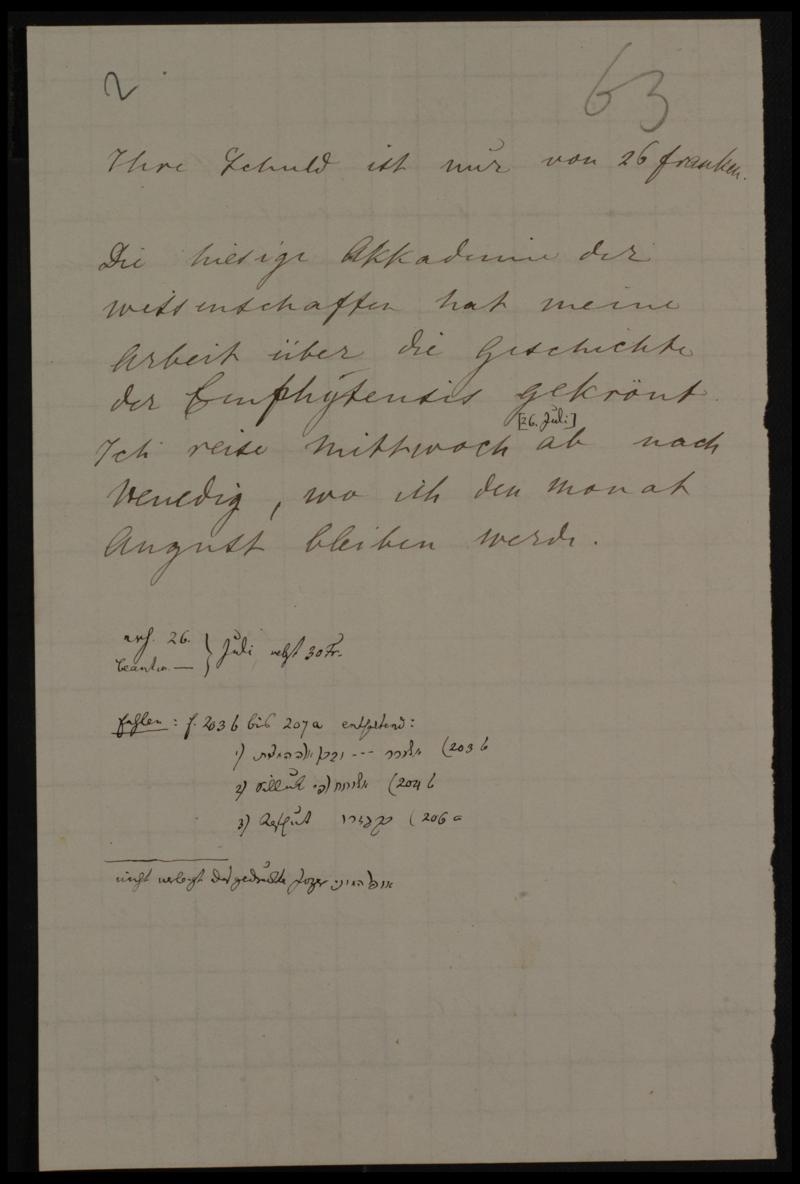 2.
63
Ihre Schuld ist nur von 26 franken.
Die hiesige Akkademie der
wissenschaften hat meine
Arbeit über die Geschichte
der Emphyteusis gekrönt.
[26. Juli]
Ich reise Mittwoch ab nach
Venedig, wo ich den monat
August bleiben werde.
26. } Juli nebst 30 Fr.
beantw. —
fehlen: f. 203 b bis 207 a enthaltend:
1) --- (203 b
2) (204 b
3) (206 a
nicht verlangt der gedruckte Jozer